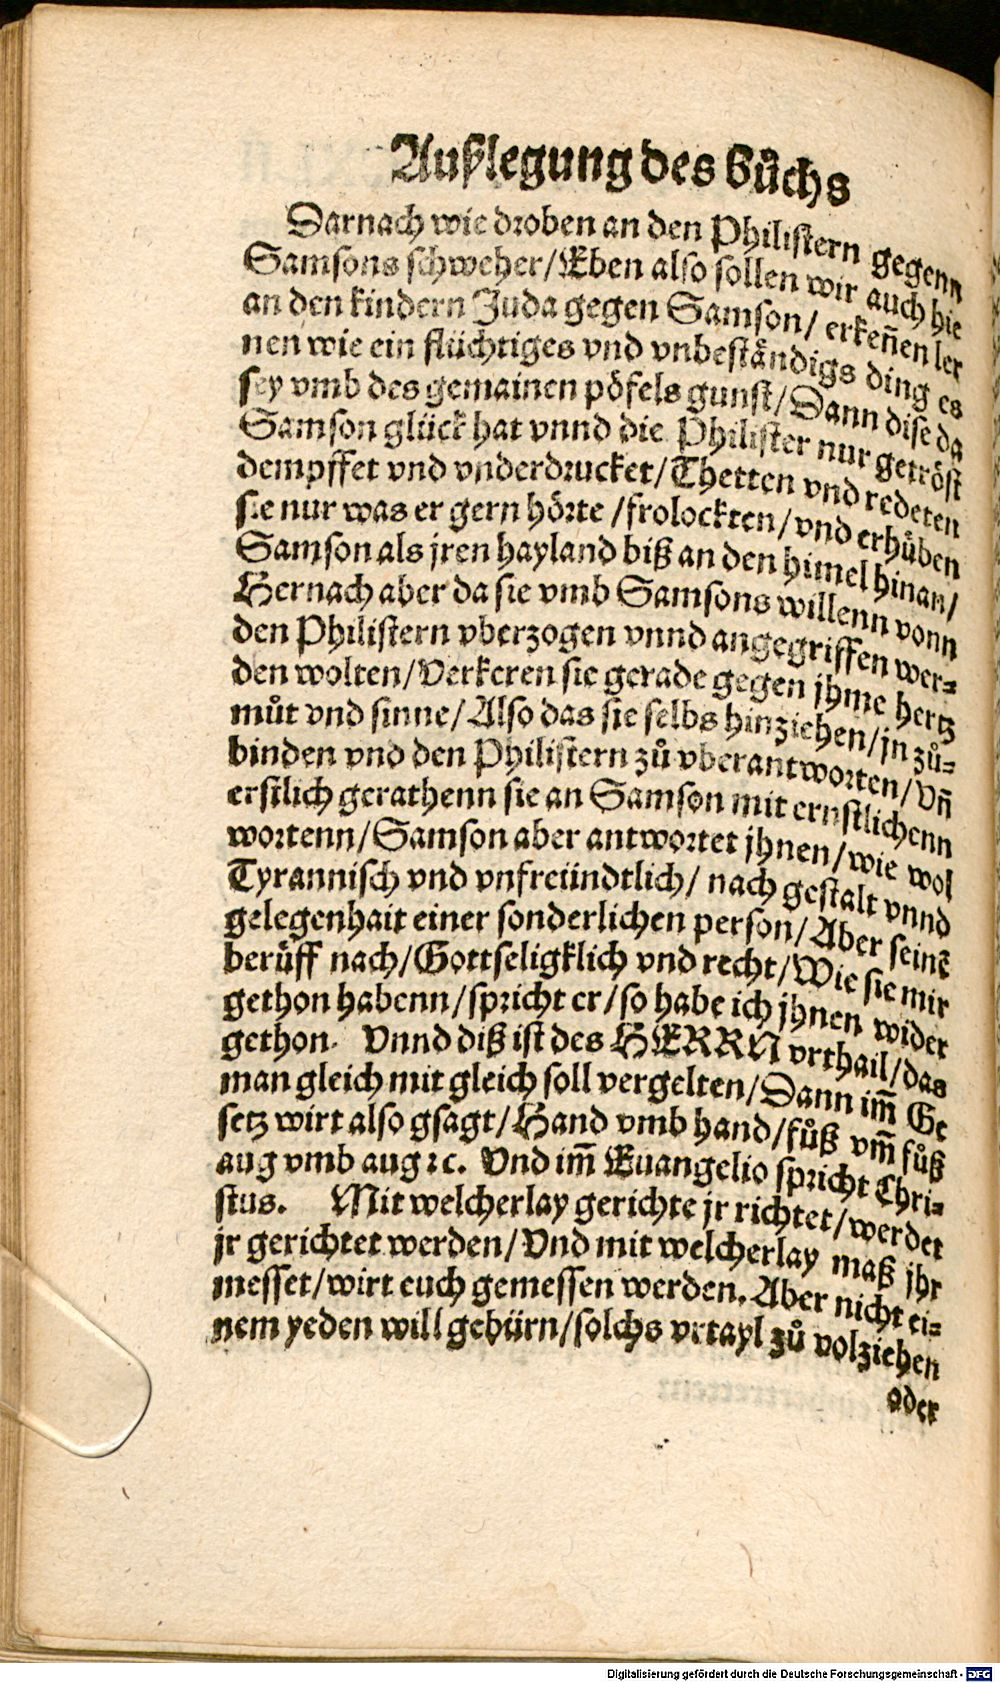 Außlegung des bůchs
Darnach wie droben an den Philistern gegenn
Samsons schweher/Eben also sollen wir auch hie
an den kindern Juda gegen Samson/ erkeñen ler
nen wie ein flüchtiges vnd vnbeständigs ding es
sey vmb des gemainen pöfels gunst/Dann dise da
Samson glück hat vnnd die Philister nur getröst
dempffet vnd vnderdrucket/Thetten vnd redeten
sie nur was er gern hörte /frolockten/vnd erhůben
Samson als jren hayland biß an den himel hinan/
Hernach aber da sie vmb Samsons willenn vonn
den Philistern vberzogen vnnd angegriffen wer⸗
den wolten/Verkeren sie gerade gegen jhme hertz
můt vnd sinne/Also das sie selbs hinziehen/jn zů⸗
binden vnd den Philistern zů vberantworten/Vñ
erstlich gerathenn sie an Samson mit ernstlichenn
wortenn/Samson aber antwortet jhnen/wie wol
Tyrannisch vnd vnfreündtlich/ nach gestalt vnnd
gelegenhait einer sonderlichen person/Aber seinẽ
berůff nach/Gottseligklich vnd recht/Wie sie mir
gethon habenn/spricht er/so habe ich jhnen wider
gethon. Vnnd diß ist des HERRN vrthail/das
man gleich mit gleich soll vergelten/Dann im̃ Ge
setz wirt also gsagt/Hand vmb hand/fůß vm̃ fůß
aug vmb aug ꝛc. Vnd im̃ Euangelio spricht Chri⸗
stus. Mit welcherlay gerichte jr richtet/werdet
jr gerichtet werden/Vnd mit welcherlay maß jhr
messet/wirt euch gemessen werden. Aber nicht ei⸗
nem yeden will gebürn/solchs vrtayl zů volziehen
oder
Digitalisierung gefördert durch die Deutsche Forschungsgemeinschaft - DFG